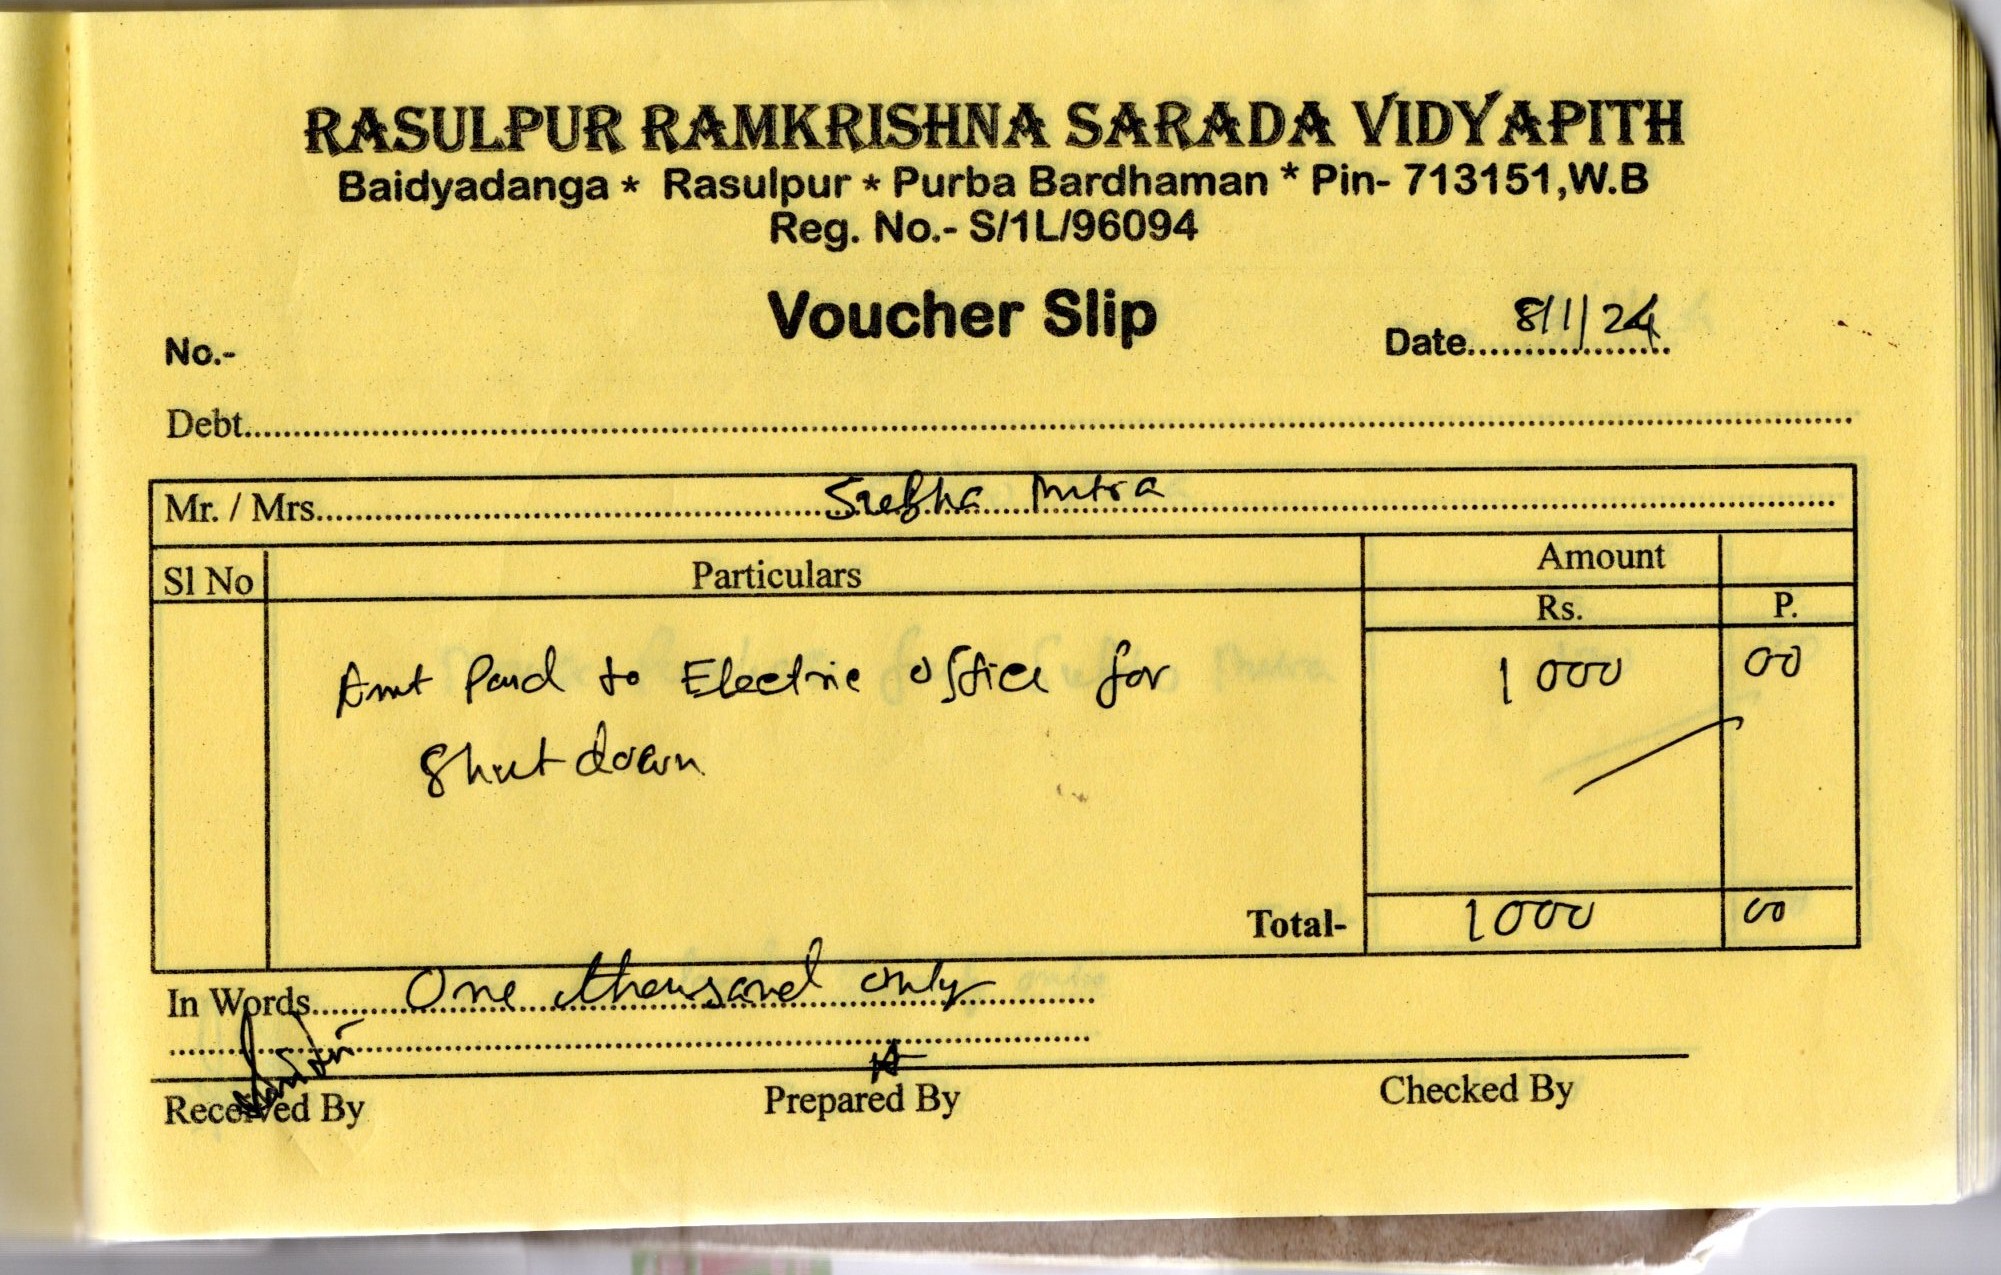 RASULPUR RAMKRISHNA SARADA VIDYAPITH
Baidyadanga * Rasulpur * Purba Bardhaman * Pin- 713151,W.B
Reg. No.- S/1L/96094
Voucher Slip
No.- Date 8/1/24
Debt
Mr. / Mrs. Subha Mitra
Sl No Particulars Amount
Rs. P.
Amt Paid to Electric office for 1000 00
Shut down
Total- 1000 00
In Words One thousand only
Received By Prepared By Checked By